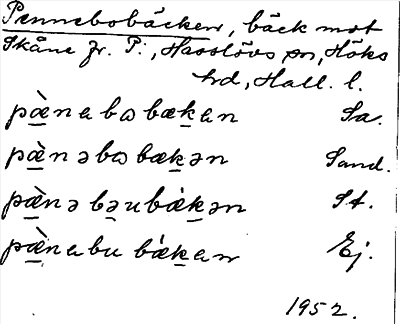 Pennebobäcken, bäck mot
Skåne fr. P., Hasslövs sn, Höks
hd, Hall. l.
pæ̀nabωbækan Sa.
pæ̀nəbωbækən Sand.
pæ̀nəbəubæ̀kən St.
pæ̀nabubækan Ej.
1952.